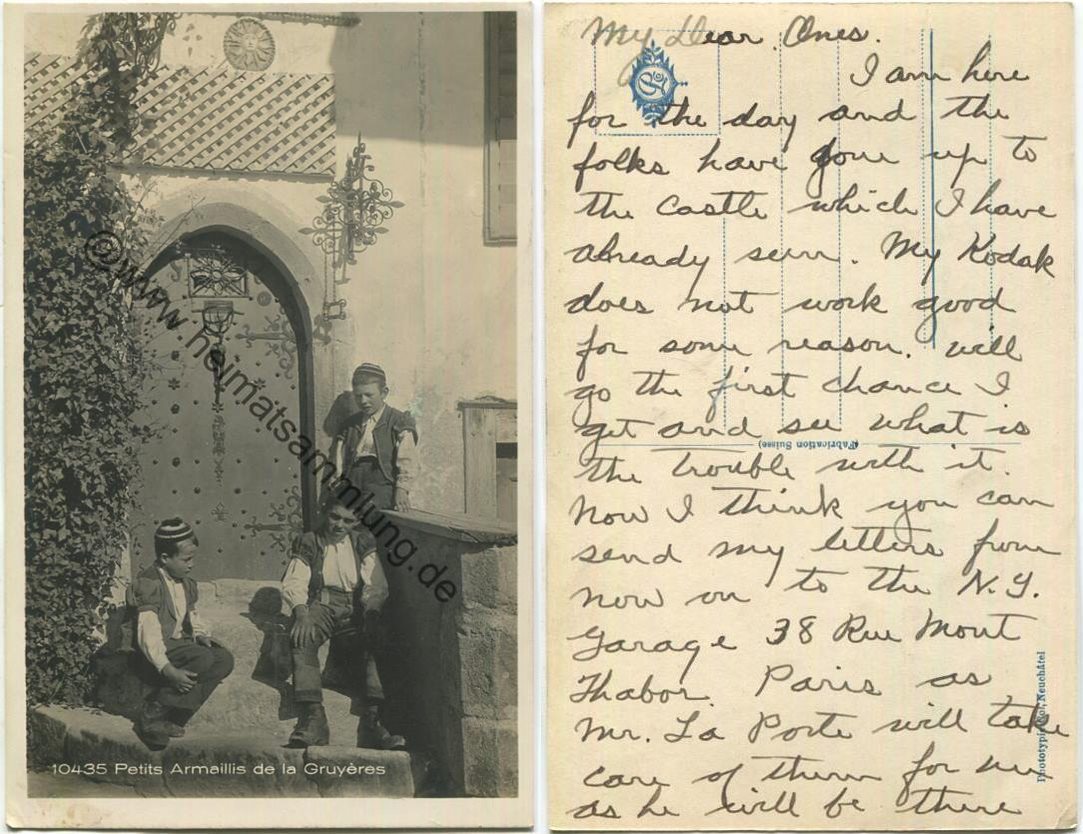 ©www.heimatsammlung.de
10435 Petits Armaillis de la Gruyères
My Dear Ones.
I am here
for the day and the
folks have gone up to
the castle which I have
already seen. My Kodak
does not work good
for some reason. will
go the first chance I
get and see what is
(Fabrication Suisse)
the trouble with it.
Now I think you can
send my letters from
now on to the N.Y.
Garage 38 Rue Mont
Thabor Paris as
Mr. La Porte will take
care of them for me
as he will be there
Neuchâtel